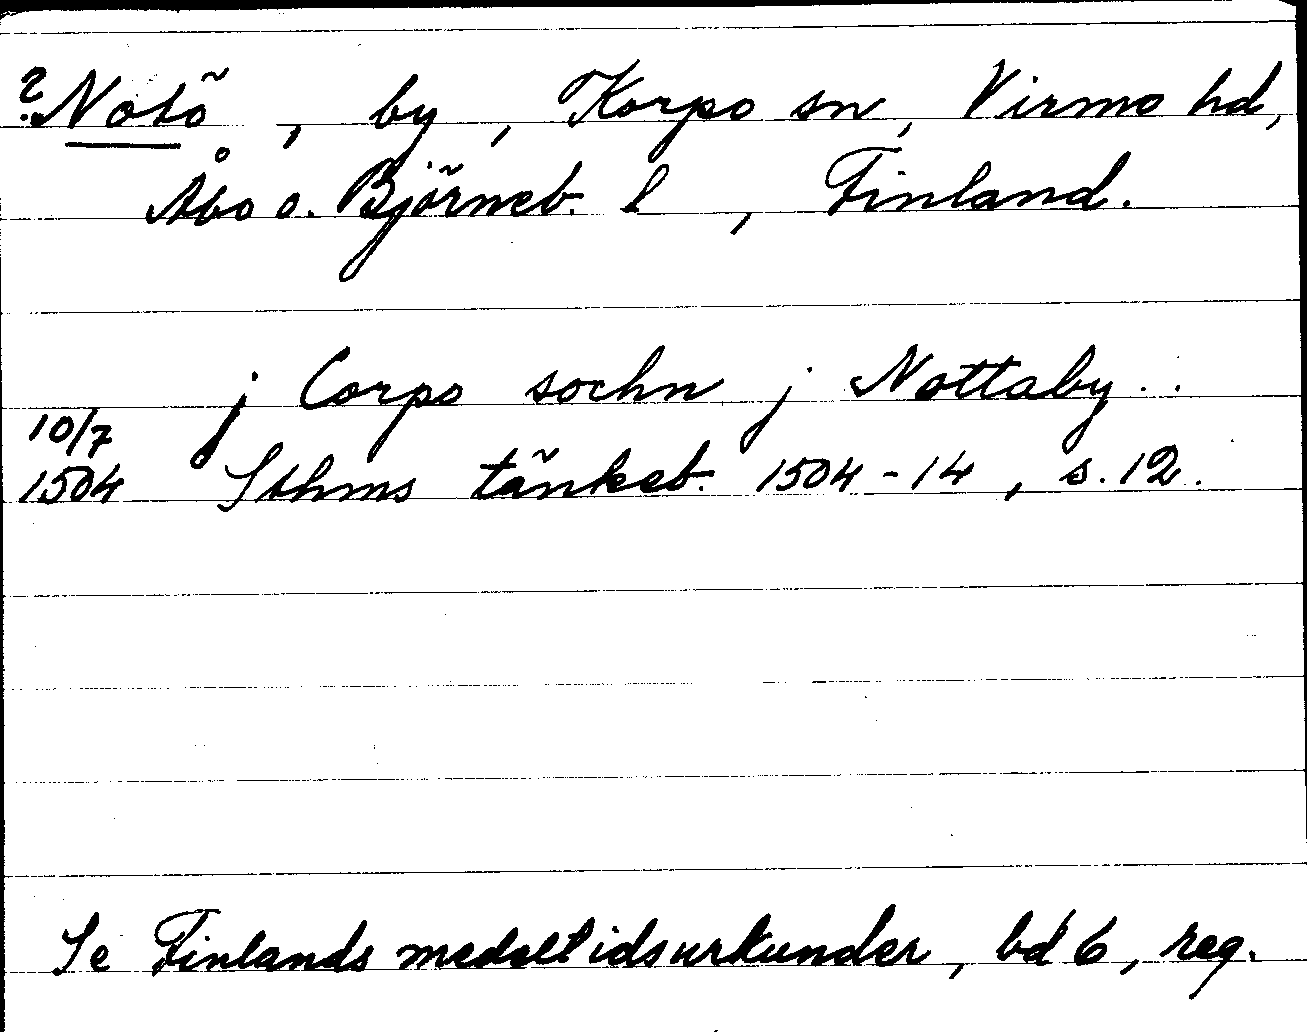 ? Notö, by, Korpo sn, Virmo hd,
Åbo o. Björneb. l, Finland.
j Corpo sochn j Nottaby..
10/7
1504 Sthms tänkeb. 1504-14, s. 12.
Se Finlands medeltidsurkunder, bd 6, reg.